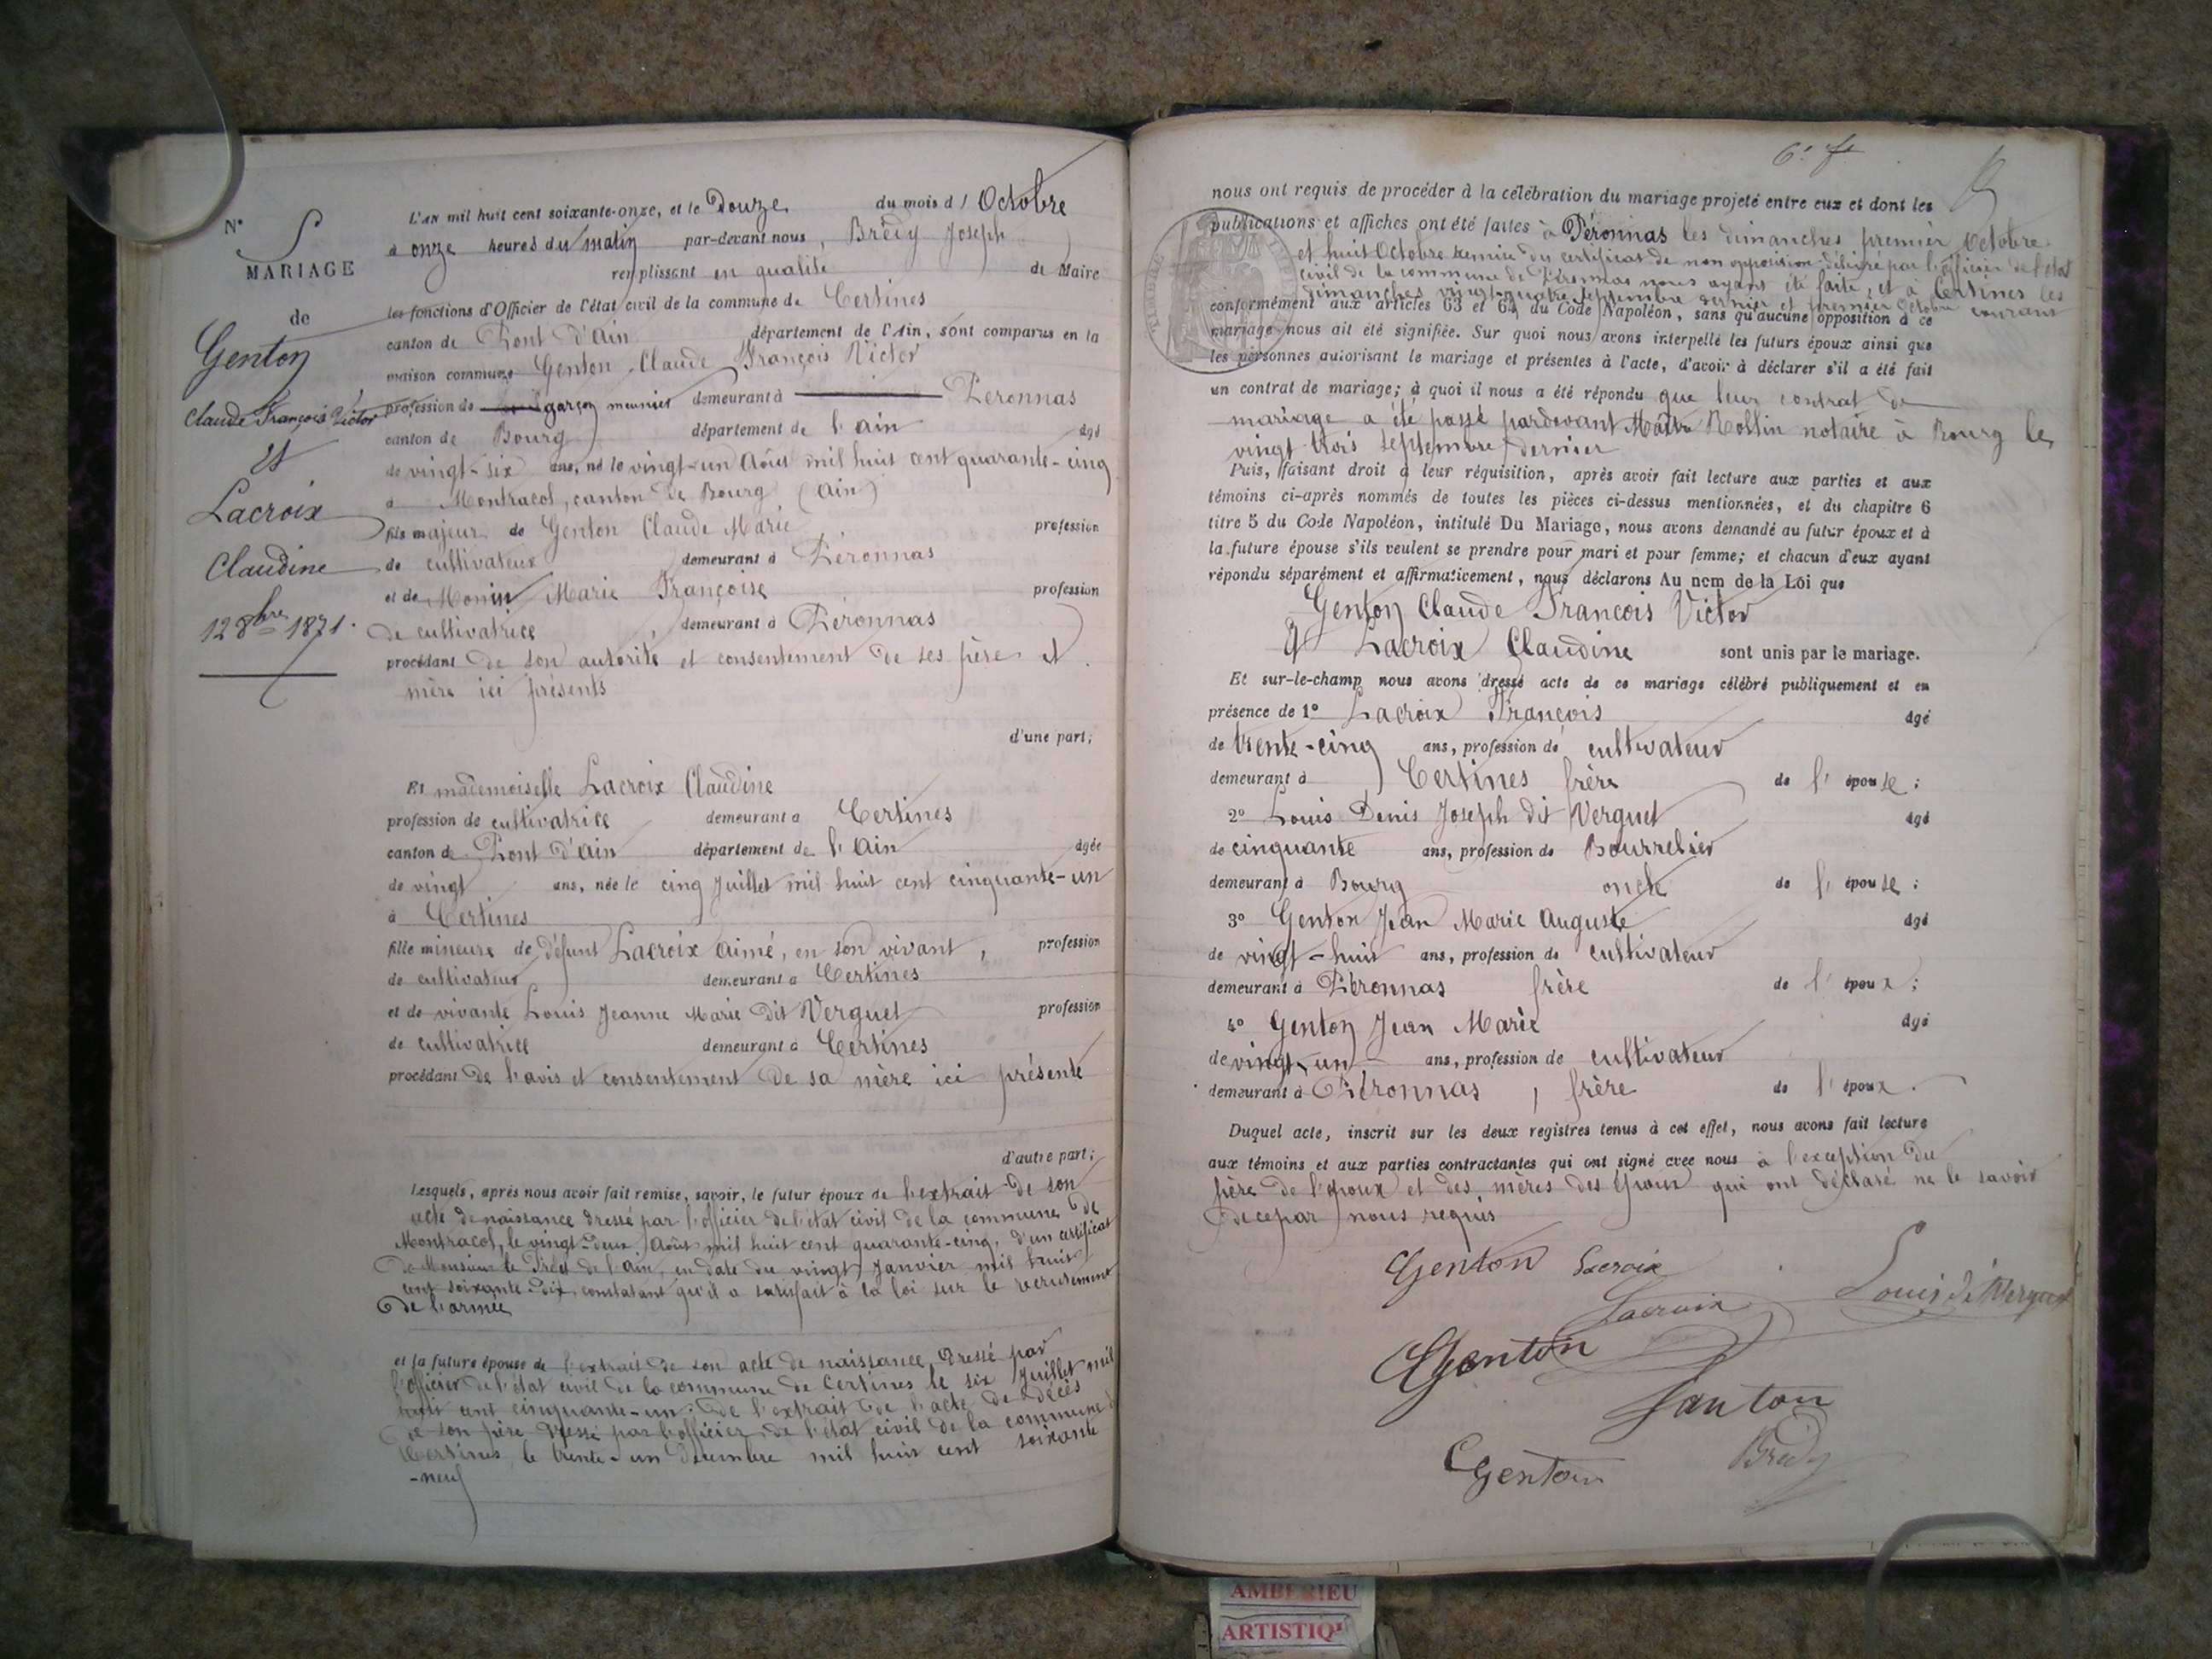 N° 5
MARIAGE
de
Genton
Claude François Victor
et
Lacroix
Claudine
12 8bre 1871.
L'AN mil huit cent soixante-onze, et le Douze du mois d' Octobre
à onze heures du matin par-devant nous, Brédy Joseph
remplissant en qualité de Maire
les fonctions d'Officier de l'état civil de la commune de Certines
canton de Pont d'Ain département de l'Ain, sont comparus en la
maison commune Genton Claude François Victor
profession de garçon meunier demeurant à Péronnas
canton de Bourg département de l'ain âgé
de vingt-six ans, né le vingt-un Août mil huit cent quarante-cinq
à Montracol, canton de Bourg (Ain)
fils majeur de Genton Claude Marie profession
de cultivateur demeurant à Péronnas
et de Monin Marie Françoise profession
de cultivatrice demeurant à Péronnas
procédant de son autorité et consentement de ses père et
mère ici présents
d'une part;
Et mademoiselle Lacroix Claudine
profession de cultivatrice demeurant à Certines
canton de Pont d'ain département de l'Ain âgée
de vingt ans, née le cinq Juillet mil huit cent cinquante-un
à Certines
fille mineure de défunt Lacroix Aimé, en son vivant, profession
de cultivateur demeurant à Certines
et de vivante Louis Jeanne Marie dit Verguet profession
de cultivatrice demeurant à Certines
procédant de l'avis et consentement de sa mère ici présente
d'autre part;
Lesquels, après nous avoir fait remise, savoir, le futur époux de l'extrait de son
acte de naissance dressé par l'officier de l'état civil de la commune de
Montracol, le vingt-deux Août mil huit cent quarante-cinq, d'un certificat
de Monsieur le Préfet de l'ain, en date du vingt Janvier mil huit
cent soixante-dix, constatant qu'il a satisfait à la loi sur le recrutement
de l'armée
et la future épouse de l'extrait de son acte de naissance dressé par
l'officier de l'état civil de la commune de Certines le six Juillet mil
huit cent cinquante-un: de l'extrait de l'acte de décès
de son père dressé par l'officier de l'état civil de la commune de
Certines, le trente-un Décembre mil huit cent soixante
-neuf
6e f
nous ont requis de procéder à la célébration du mariage projeté entre eux et dont les
publications et affiches ont été faites à Péronnas les dimanches premier Octobre
et huit Octobre remise du certificat de non opposition délivré par l'officier de l'état
civil de la commune de Péronnas nous ayant été faite, et à Certines les
dimanches vingt-quatre septembre dernier et premier Octobre courant
conformément aux articles 63 et 64 du Code Napoléon, sans qu'aucune opposition à ce
mariage nous ait été signifiée. Sur quoi nous avons interpellé les futurs époux ainsi que
les personnes autorisant le mariage et présentes à l'acte, d'avoir à déclarer s'il a été fait
un contrat de mariage; à quoi il nous a été répondu que leur contrat de
mariage a été passé pardevant Maître Rollin notaire à Bourg le
vingt trois septembre dernier
Puis, faisant droit à leur réquisition, après avoir fait lecture aux parties et aux
témoins ci-après nommés de toutes les pièces ci-dessus mentionnées, et du chapitre 6
titre 5 du Code Napoléon, intitulé Du Mariage, nous avons demandé au futur époux et à
la future épouse s'ils veulent se prendre pour mari et pour femme; et chacun d'eux ayant
répondu séparément et affirmativement, nous déclarons Au nom de la Loi que
Genton Claude François Victor
et Lacroix Claudine sont unis par le mariage.
Et sur-le-champ nous avons dressé acte de ce mariage célébré publiquement et en
présence de 1° Lacroix François âgé
de trente-cinq ans, profession de cultivateur
demeurant à Certines frère de l'épouse;
2° Louis Denis Joseph dit Verguet âgé
de cinquante ans, profession de Bourrelier
demeurant à Bourg oncle de l'épouse;
3° Genton Jean Marie Auguste âgé
de vingt-huit ans, profession de cultivateur
demeurant à Péronnas frère de l'époux;
4° Genton Jean Marie âgé
de vingt-un ans, profession de cultivateur
demeurant à Péronnas, frère de l'époux.
Duquel acte, inscrit sur les deux registres tenus à cet effet, nous avons fait lecture
aux témoins et aux parties contractantes qui ont signé avec nous à l'exception du
père de l'époux et des mères des époux qui ont déclaré ne le savoir
de ce par nous requis
Genton Lacroix
Lacroix Louis dit Verguet
Genton
Janton
Genton Brédy
AMBERIEU
ARTISTIQ